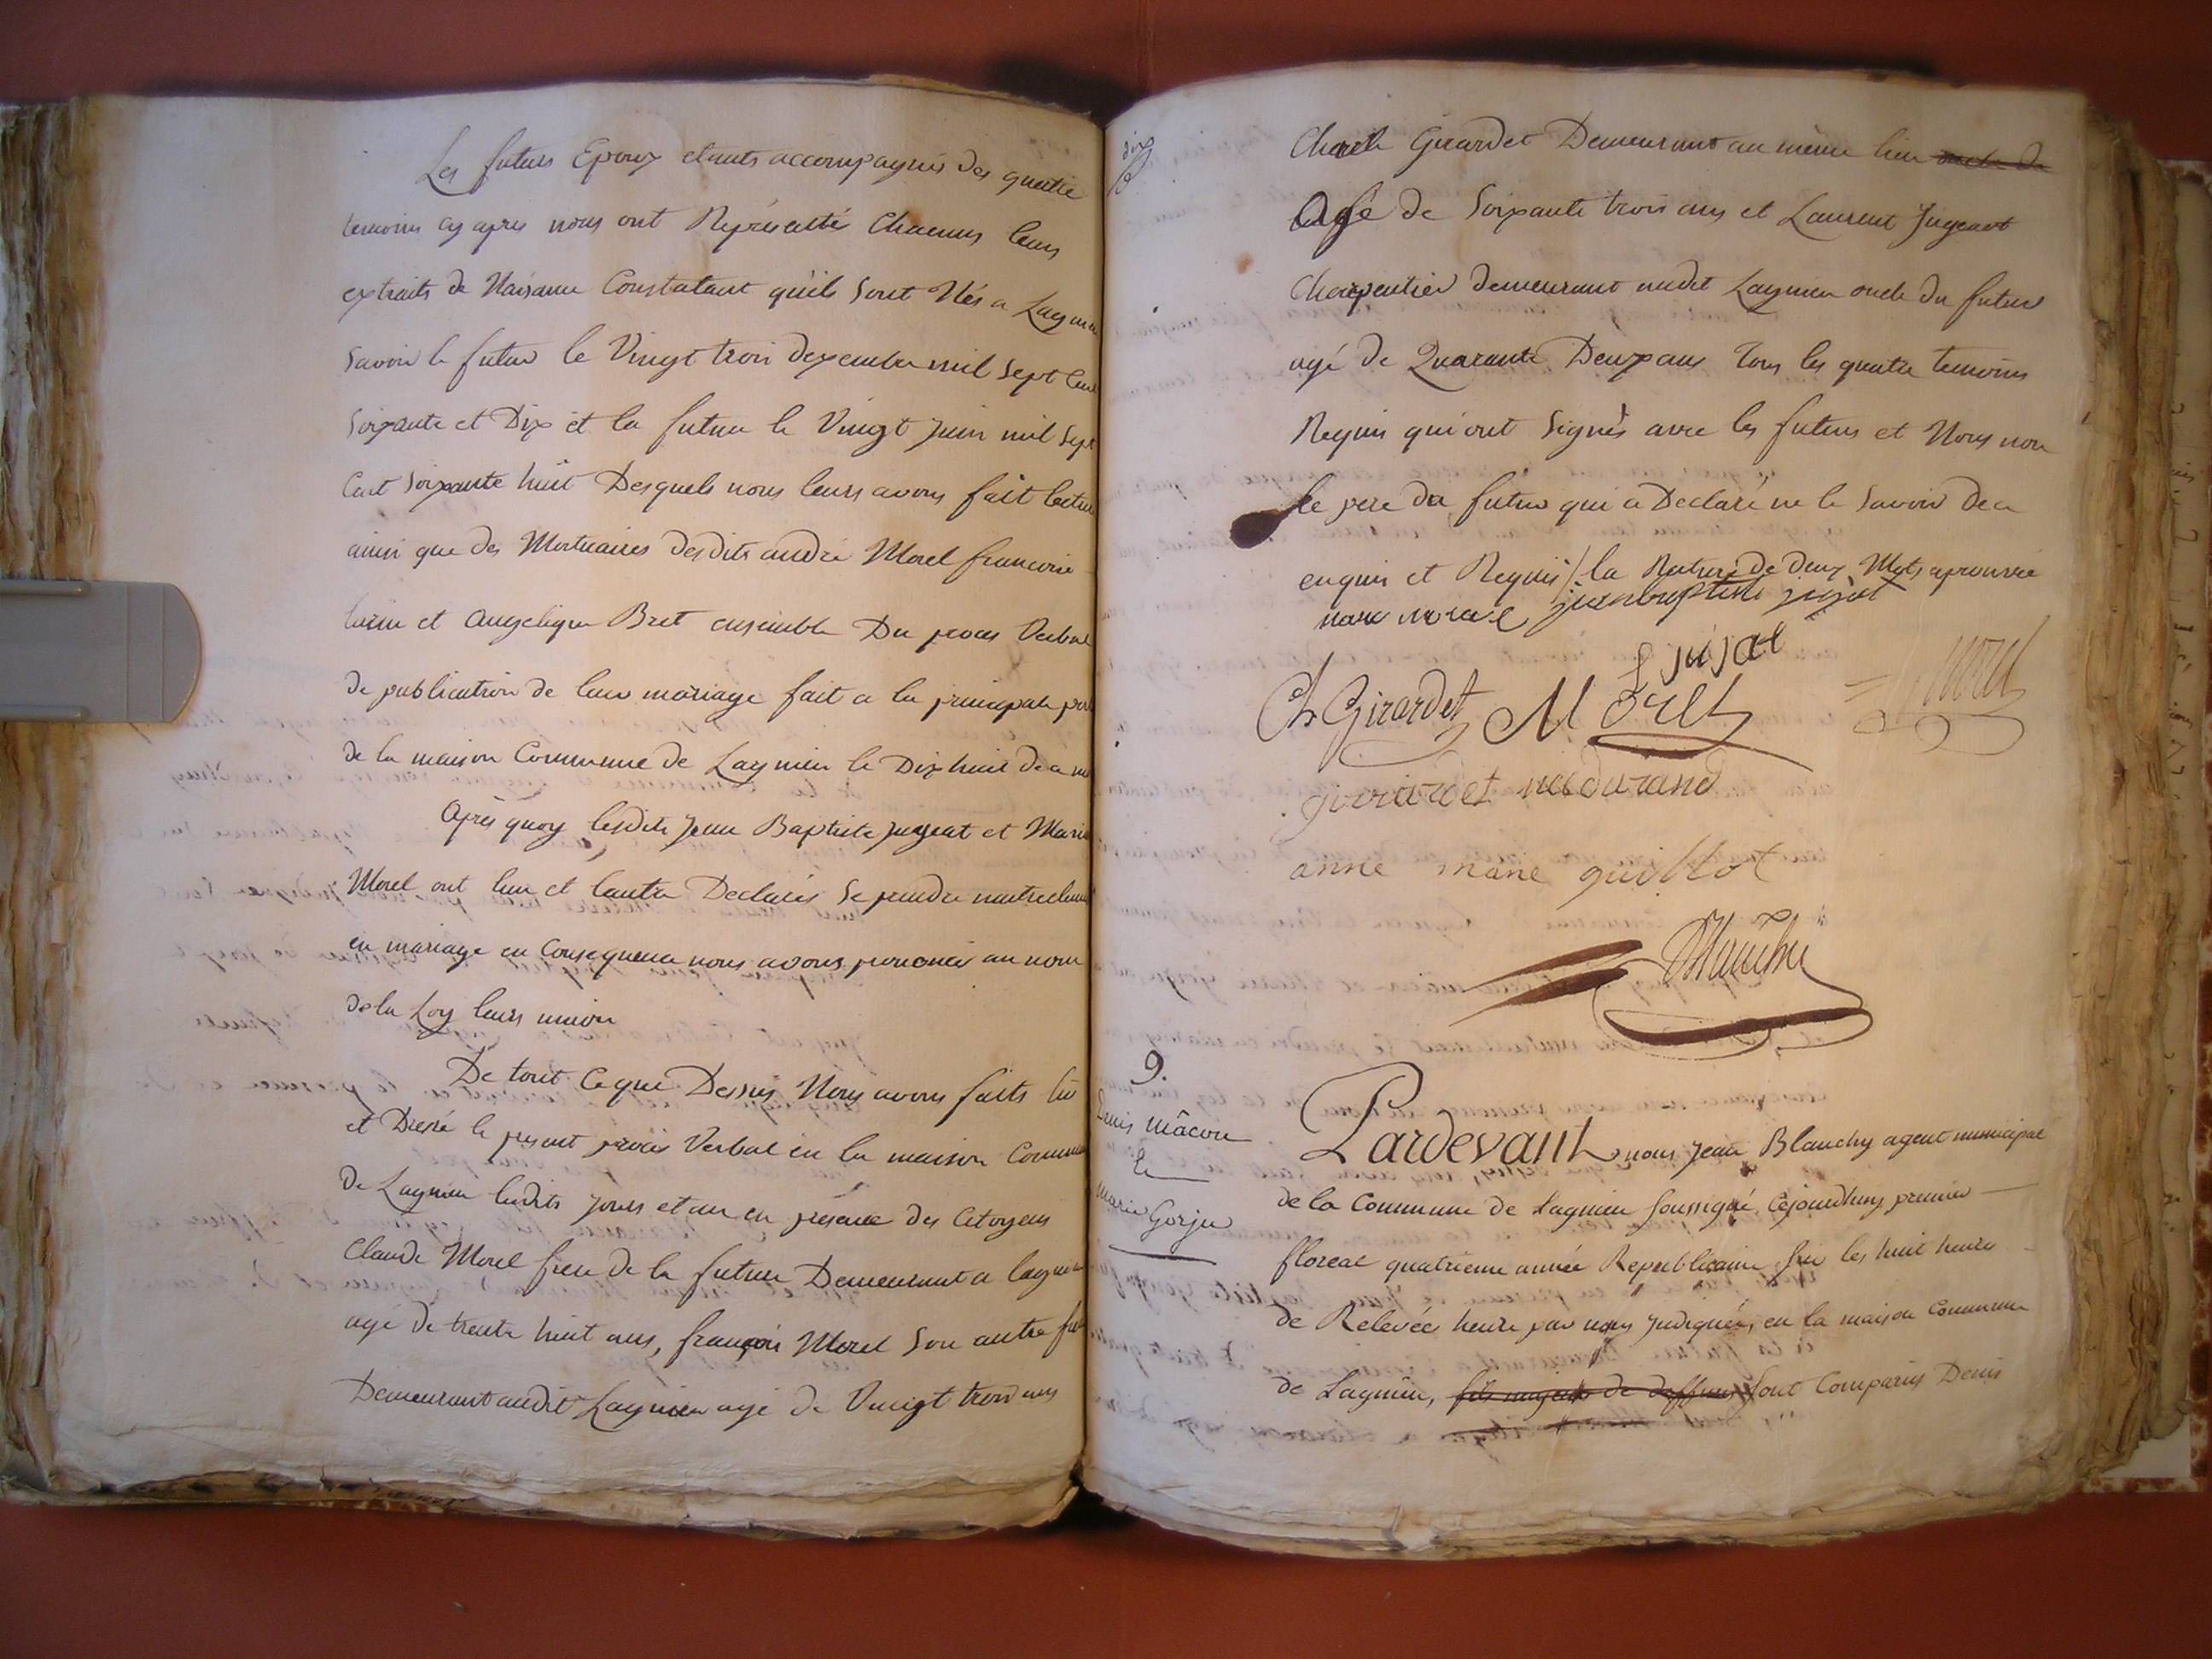 Les futurs Epoux etants accompagnés des quatre
temoins cy apres nous ont Représentés Chacuns leurs
extraits de Naisance Constatant qu'ils sont Nés a Lagnieu
Savoir le futur le Vingt trois dexembre mil Sept Cent
Soixante et Dix et la future le Vingt Juin mil Sept
Cent Soixante huit Desquels nous leurs avons fait lecture
ainsi que des Mortuaires desdits andré Morel francoise
et angelique Bret ensemble Du proces Verbal
de publication de leur mariage fait a la principale porte
de la maison Commune de Lagnieu le Dix huit de ce mois
Après quoy lesdits Jean Baptiste jugeat et Marie
Morel ont lun et lautre Declarés Se prendre mutuellement
en mariage en Consequence nous avons prononcé au nom
de la Loy leurs union
De tout Ce que Dessus Nous avons faits lu
et Dressé le present procès Verbal en la maison Commune
de Lagnieu lesdits jours et an en présence des Citoyens
Claude Morel frere de la future Demeurant a lagnieu
agé de trente huit ans, françois Morel Son autre frere
Demeurant audit Lagnieu agé de Vingt trois ans
dix
Charle Girardet Demeurant au même lieu oncle de
Agé de Soixante trois ans et Laurent Jugeat
Charpentier demeurant audit Lagnieu oncle du futur
agé de Quarante Deux ans Tous les quatre temoins
Requis qui ont Signés avec les futurs et Nous non
le pere du futur qui a Declaré ne le Savoir de ce
enquis et Requis / la Rature de deux Mots aprouvée
morel jeanbaptiste jujat
l jujat
Ch Girardet Morel Morel
girardet nee durand
anne marie guillot
Blanchy
9.
Denis mâcon
&
marie Gorju
Pardevant nous Jean Blanchy agent municipal
de la Commune de Lagnieu Soussigné, Cejourdhuy premier
floreal quatrieme année Republicaine Sur les huit heures
de Relevée heure par nous Indiquée, en la maison Commune
de Lagnieu, fils majeur de deffunt Sont Comparus Denis